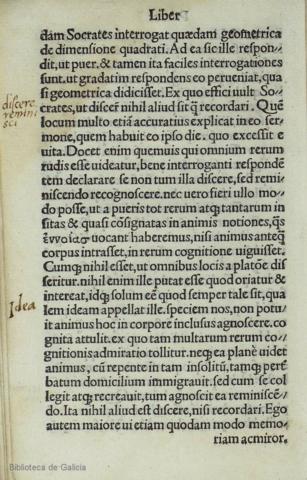 Liber
dam Socrates interrogat quædam geometrica
de dimensione quadrati. Ad ea sic ille respon⸗
dit, ut puer. & tamen ita faciles interrogationes
sunt, ut gradatim respondens eo perueniat, qua
si geometrica didicisset. Ex quo effici uult So⸗
crates, ut discere nihil aliud sit q̃ recordari. Quē
discere
remini
sci
locum multo etiā accuratius explicat in eo ser⸗
mone, quem habuit eo ipso die, quo excessit e
uita. Docet enim quemuis qui omnium rerum
rudis esse uideatur, bene interroganti respondē
tem declarare se non tum illa discere, sed remi⸗
niscendo recognoscere. nec uero fieri ullo mo⸗
do posse, ut a pueris tot rerum atq; tantarum in
sitas & quasi cōsignatas in animis notiones, q̃s
ἐννοίας uocant haberemus, nisi animus anteq̃
corpus intrasset, in rerum cognitione uiguisset.
Cumq; nihil esset, ut omnibus locis a platōe dis
seritur. nihil enim ille putat esse quod oriatur &
intereat, idq; solum eē quod semper tale sit, qua
Idea
lem ideam appellat ille. speciem nos, non potu⸗
it animus hoc in corpore inclusus agnoscere. co
gnita attulit. ex quo tam multarum rerum co⸗
gnitionis admiratio tollitur. neq; ea planè uidet
animus, cū repente in tam insolitū, tamq; pertˀ
batum domicilium immigrauit. sed cum se col
legit atq; recreauit, tum agnoscit ea reminiscē⸗
do. Ita nihil aliud est discere, nisi recordari. Ego
autem maiore ui etiam quodam modo memo⸗
riam acmiror.
Biblioteca de Galicia